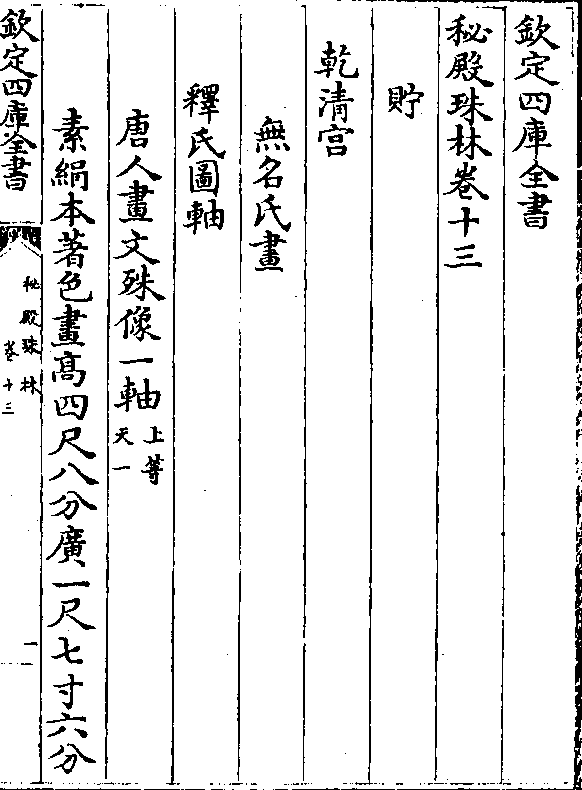 欽定四庫全書
秘殿珠林卷十三
貯
乾清宮
無名氏畫
釋氏圖軸
唐人畫文殊像一軸上等天一
素絹本著色畫高四尺八分廣一尺七寸六分
欽定四庫全書
秘殿珠林
卷十三
一